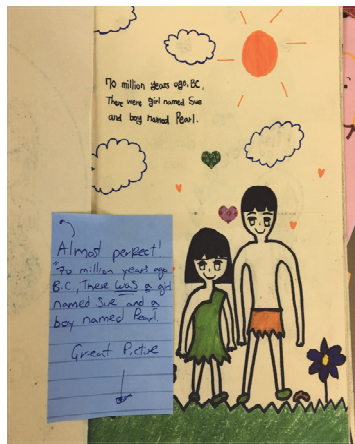 70 million years ago, BC,
There were girl named Sue
and boy named Pearl.
Almost perfect!
"70 million years ago
B.C., There was a girl
named Sue" and a
boy named Pearl.
Great Picture